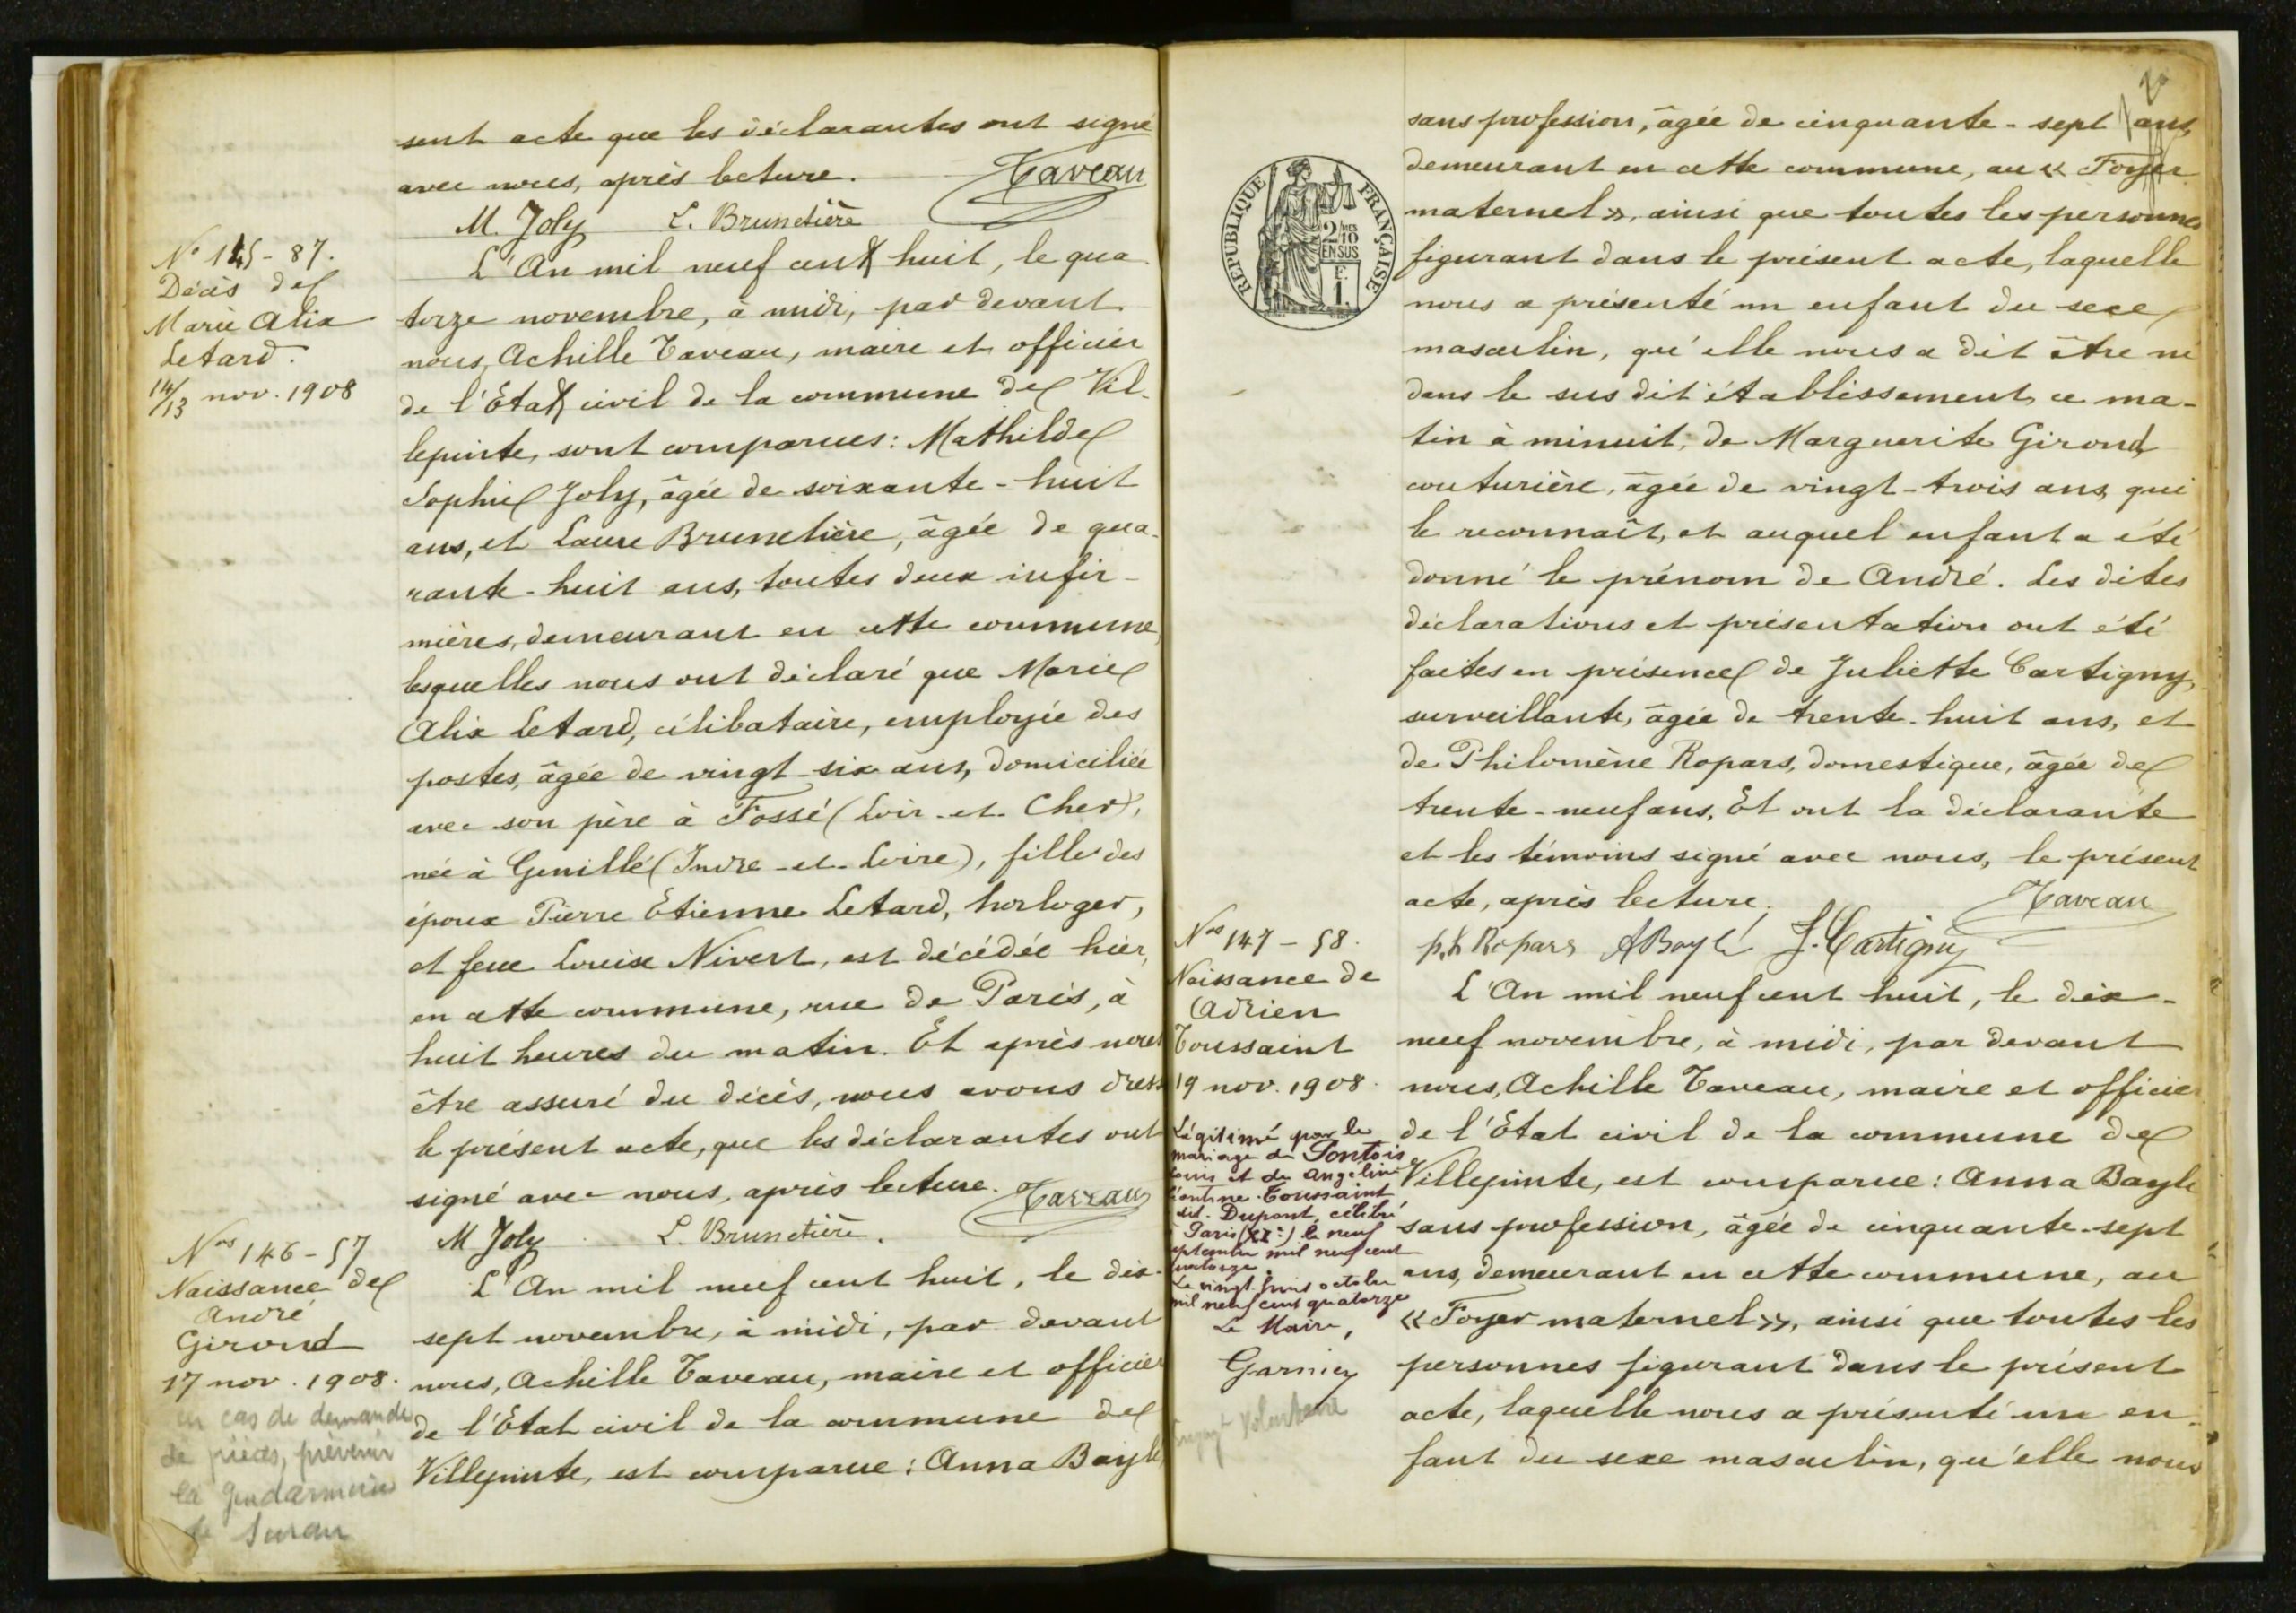 sent acte que les déclarantes ont signé
avec nous, après lecture. Taveau
M. Joly L. Brunetière
N° 145-87.
Décès de
Marie Alix
Letard.
14/13 nov. 1908
L'An mil neuf cent huit, le qua-
torze novembre, à midi, par devant
nous, Achille Taveau, maire et officier
de l'Etat civil de la commune de Vil-
lepinte, sont comparues: Mathilde
Sophie Joly, âgée de soixante-huit
ans, et Laure Brunetière, âgée de qua-
rante-huit ans, toutes deux infir-
mières, demeurant en cette commune,
lesquelles nous ont déclaré que Marie
Alix Letard, célibataire, employée des
postes, âgée de vingt-six ans, domiciliée
avec son père à Fossé (Loir-et-Cher),
née à Genillé (Indre-et-Loire), fille des
époux Pierre Etienne Letard, horloger,
et feue Louise Nivert, est décédée hier,
en cette commune, rue de Paris, à
huit heures du matin. Et après nous
être assuré du décès, nous avons dressé
le présent acte, que les déclarantes ont
signé avec nous, après lecture. Taveau
M Joly L. Brunetière.
Nos 146-57
Naissance de
André
Girond
17 nov. 1908.
en cas de demande
de pièces, prévenir
la gendarmerie
de
L'An mil neuf cent huit, le dix-
sept novembre, à midi, par devant
nous, Achille Taveau, maire et officier
de l'Etat civil de la commune de
Villepinte, est comparue: Anna Bayle,
sans profession, âgée de cinquante-sept ans,
demeurant en cette commune, au « Foyer
maternel », ainsi que toutes les personnes
figurant dans le présent acte, laquelle
nous a présenté un enfant du sexe
masculin, qu'elle nous a dit être né
dans le susdit établissement, ce ma-
tin à minuit, de Marguerite Girond,
couturière, âgée de vingt-trois ans, qui
le reconnaît, et auquel enfant a été
donné le prénom de André. Les dites
déclarations et présentation ont été
faites en présence de Juliette Cartigny,
surveillante, âgée de trente-huit ans, et
de Philomène Ropars, domestique, âgée de
trente-neuf ans. Et ont la déclarante
et les témoins signé avec nous, le présent
acte, après lecture. Taveau
ph Ropars ABayle J. Cartigny
REPUBLIQUE FRANÇAISE
2/10 EN SUS
1F.
Nos 147-58.
Naissance de
Adrien
Toussaint
19 nov. 1908.
Légitimé par le
mariage de Pontois
Louis et de Angeline
Léontine Toussaint
dit Dupont, célébré
à Paris (XIe) le neuf
septembre mil neuf cent
quatorze.
Le vingt huit octobre
mil neuf cent quatorze
Le Maire,
Garnier
volontaire
L'An mil neuf cent huit, le dix-
neuf novembre, à midi, par devant
nous, Achille Taveau, maire et officier
de l'Etat civil de la commune de
Villepinte, est comparue: Anna Bayle
sans profession, âgée de cinquante-sept
ans, demeurant en cette commune, au
« Foyer maternel », ainsi que toutes les
personnes figurant dans le présent
acte, laquelle nous a présenté un en-
fant du sexe masculin, qu'elle nous